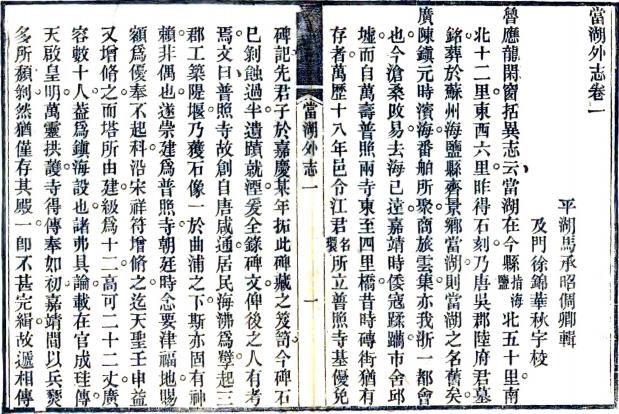 當湖外志卷一
平湖馬承昭倜卿輯
及門徐錦華秋宇校
魯應龍閑窗括異志云當湖在今縣指海鹽北五十里南
北十二里東西六里昨得石刻乃唐吳郡陸府君墓
銘葬於蘇州海鹽縣齊景鄉當湖則當湖之名舊矣
廣陳鎮元時濱海番舶所聚商旅雲集亦我浙一都會
也今滄桑改易去海已遠嘉靖時倭寇蹂躪市舍邱
墟而自萬壽普照兩寺東至四里橋昔時磚街猶有
存者萬歷十八年邑令江君名製所立普照寺基優免
當湖外志 一
一
碑記先君子於嘉慶某年拓此碑藏之笈笥今碑石
已剝蝕過半遺蹟就湮爰全錄碑文俾後之人有考
焉文曰普照寺故創自唐咸通居民海沸爲孽起三
郡工築隄堰乃獲石像一於曲浦之下斯亦固有神
賴非偶也遂崇建爲普照寺朝廷時念要津福地賜
額爲優奉不起科沿宋祥符增修之迄天聖壬申益
又增修之而塔所由建級爲十二高可二十二丈廣
容數十人葢爲鎮海設也諸弗具論載在官成珪傳
天啟皇明萬靈拱護寺得傳奉如初嘉靖間以兵燹
多所頹剝然猶僅存其殿一即不甚完緝故遞相傳